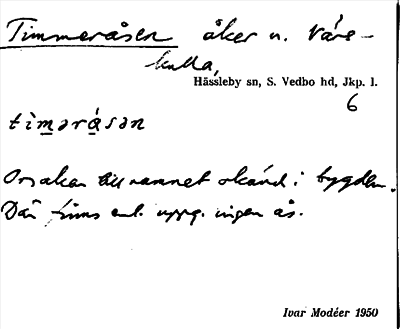 Timmeråsen åker n. Våre-
kulla,
Hässleby sn, S. Vedbo hd, Jkp. l.
6
tìmərå̀sən
Orsaken till namnet okänd i bygden.
Där finns enl. uppg. ingen ås.
Ivar Modéer 1950